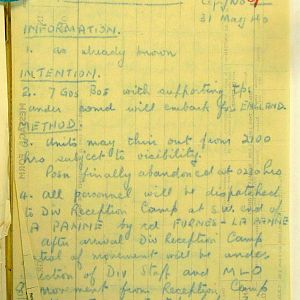 Copy No 9
31 May 40
INFORMATION.
1. as already known
INTENTION.
2. 7 Gds Bde with supporting tps
under comd will embark for ENGLAND.
METHOD.
3. Units may thin out from 2100
hrs subject to visibility.
Posn finally abandoned at 0230 hrs
4. all personnel will be dispatched
to Div Reception Camp at S.W. end of
A PANNE by rd FURNES - LA PANNE
after arrival Div Reception Camp
of movement will be under
of Div Staff and MLO
movement from Reception Camp